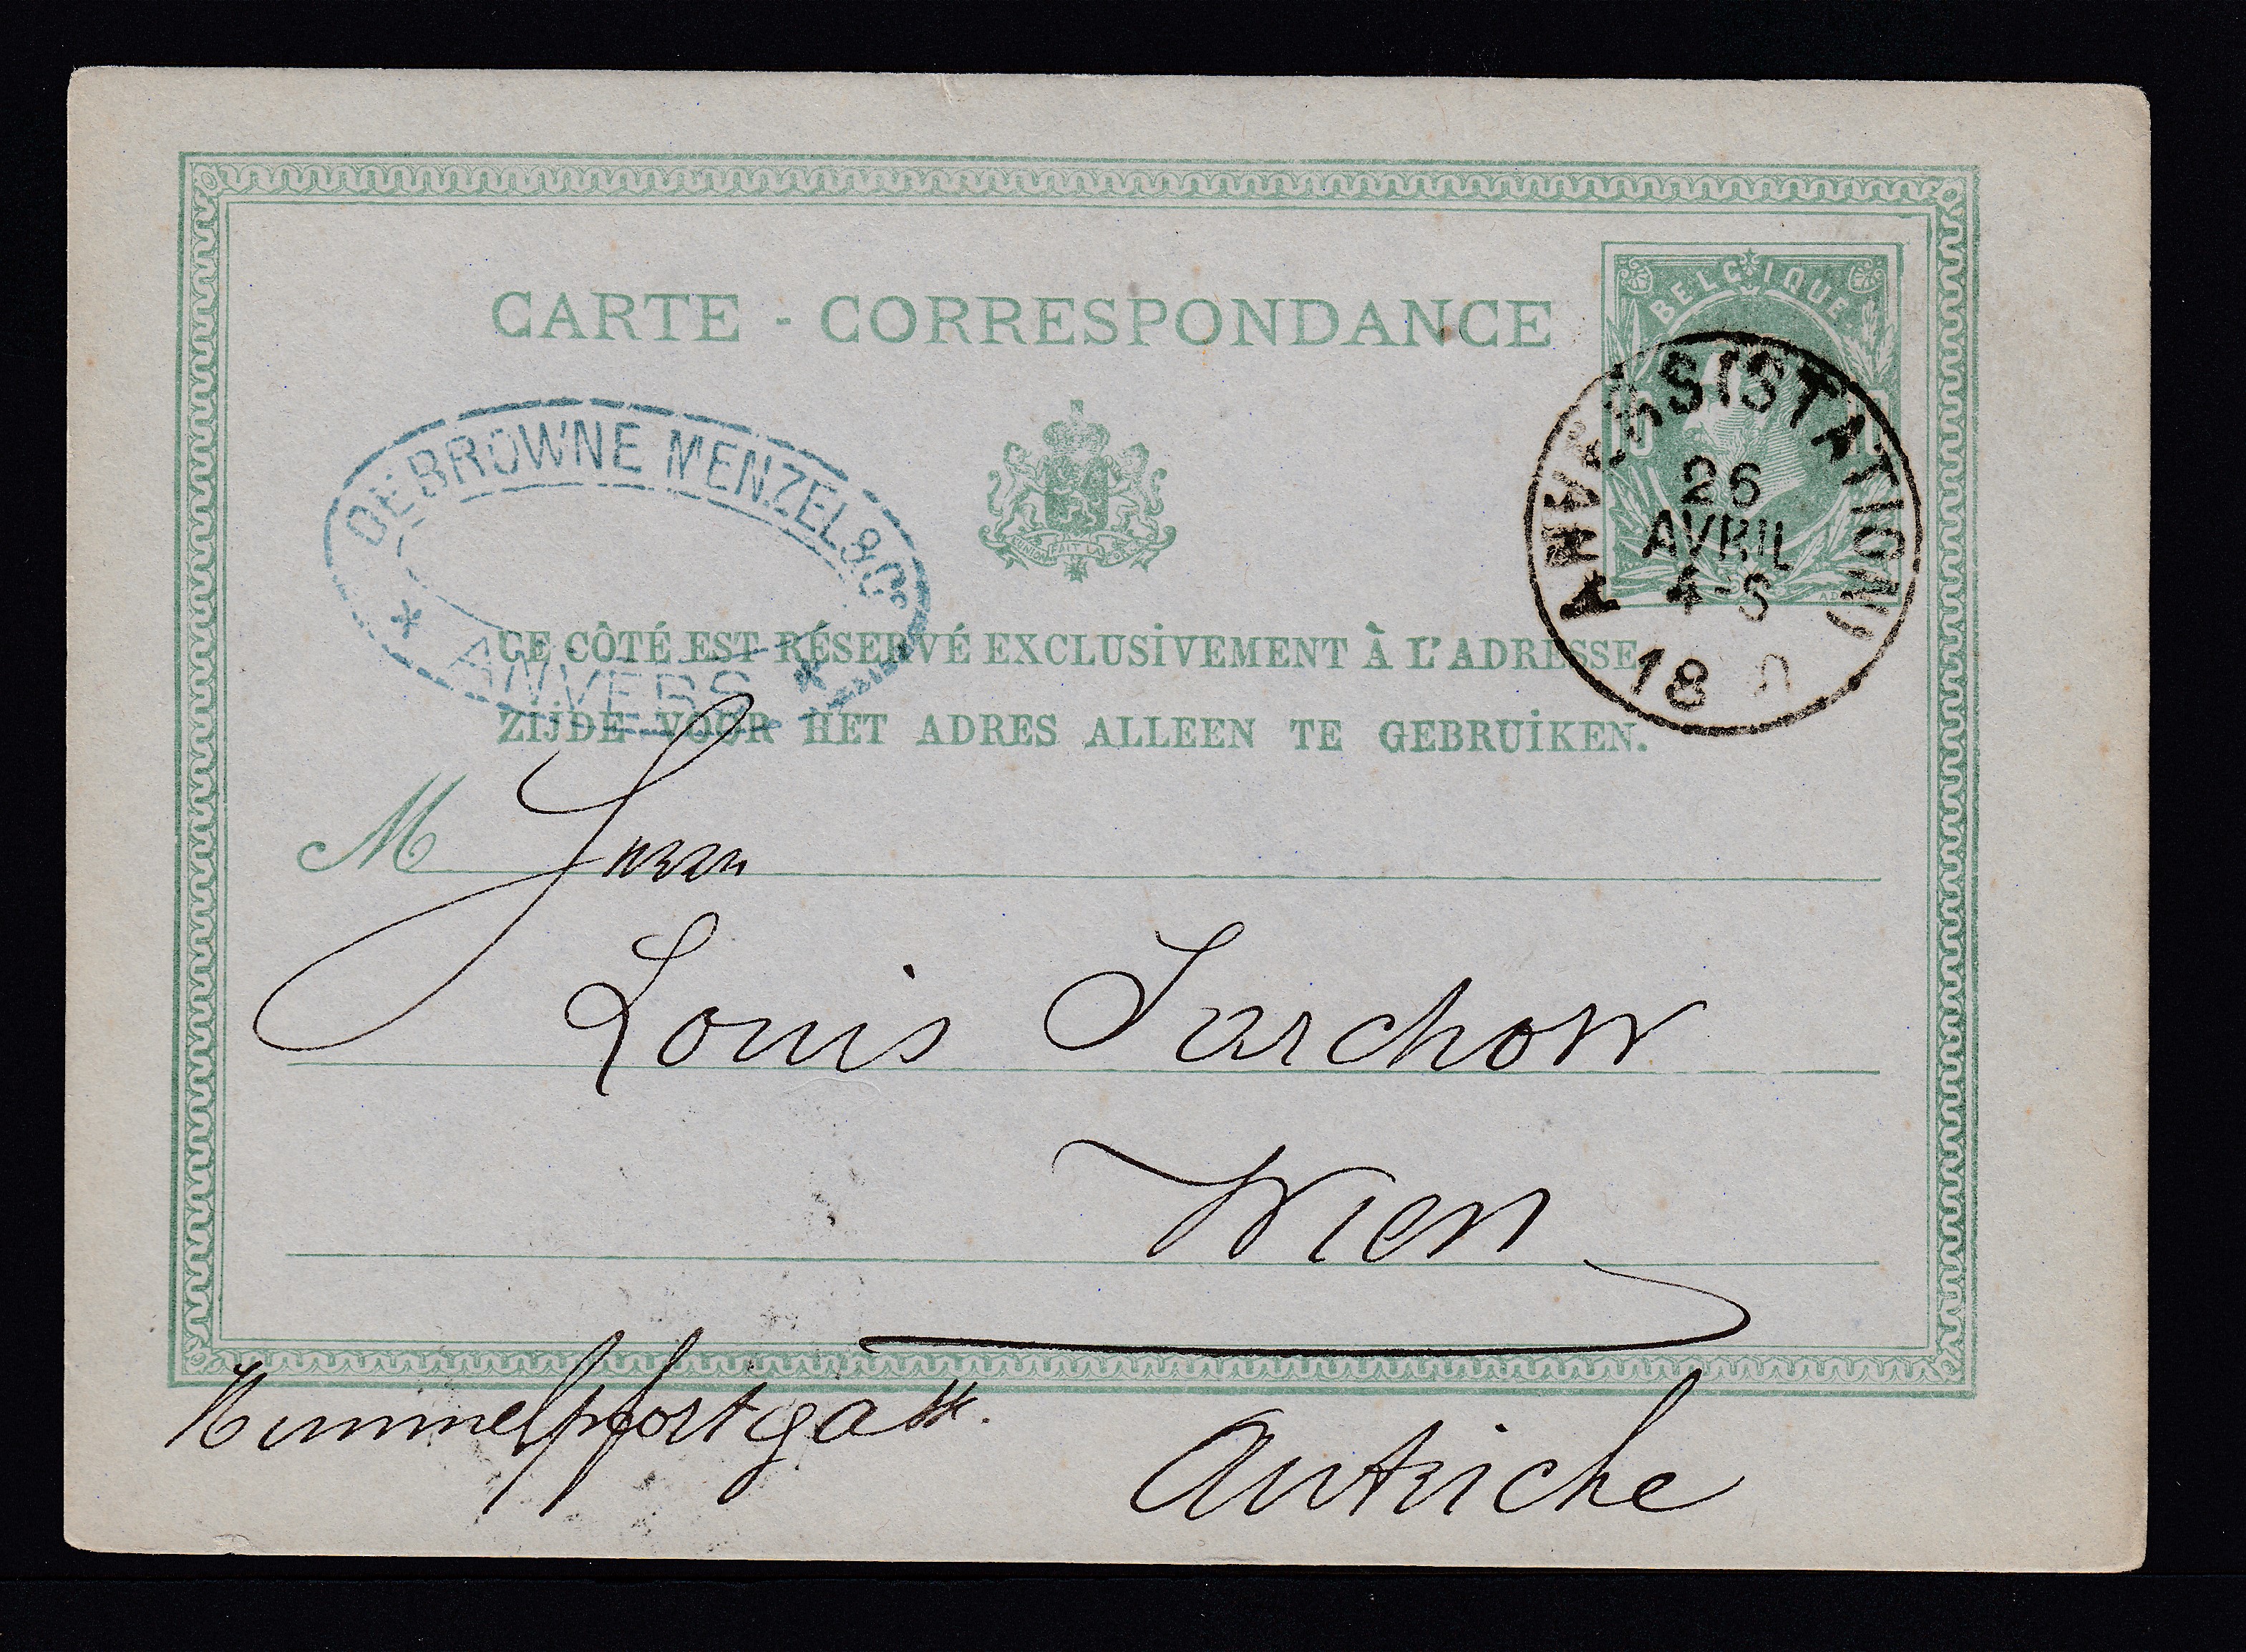 BELGIQUE
CARTE - CORRESPONDANCE
ANVERS (STATION)
26
AVRIL
4-S
18
DEBROWNE MENZEL & Co
* ANVERS *
L'UNION FAIT LA
CE CÔTÉ EST RÉSERVÉ EXCLUSIVEMENT À L'ADRESSE
ZIJDE VOOR HET ADRES ALLEEN TE GEBRUIKEN.
M Herrn
Louis Sarchow
Wien
Himmelpfortgasse.
Autriche